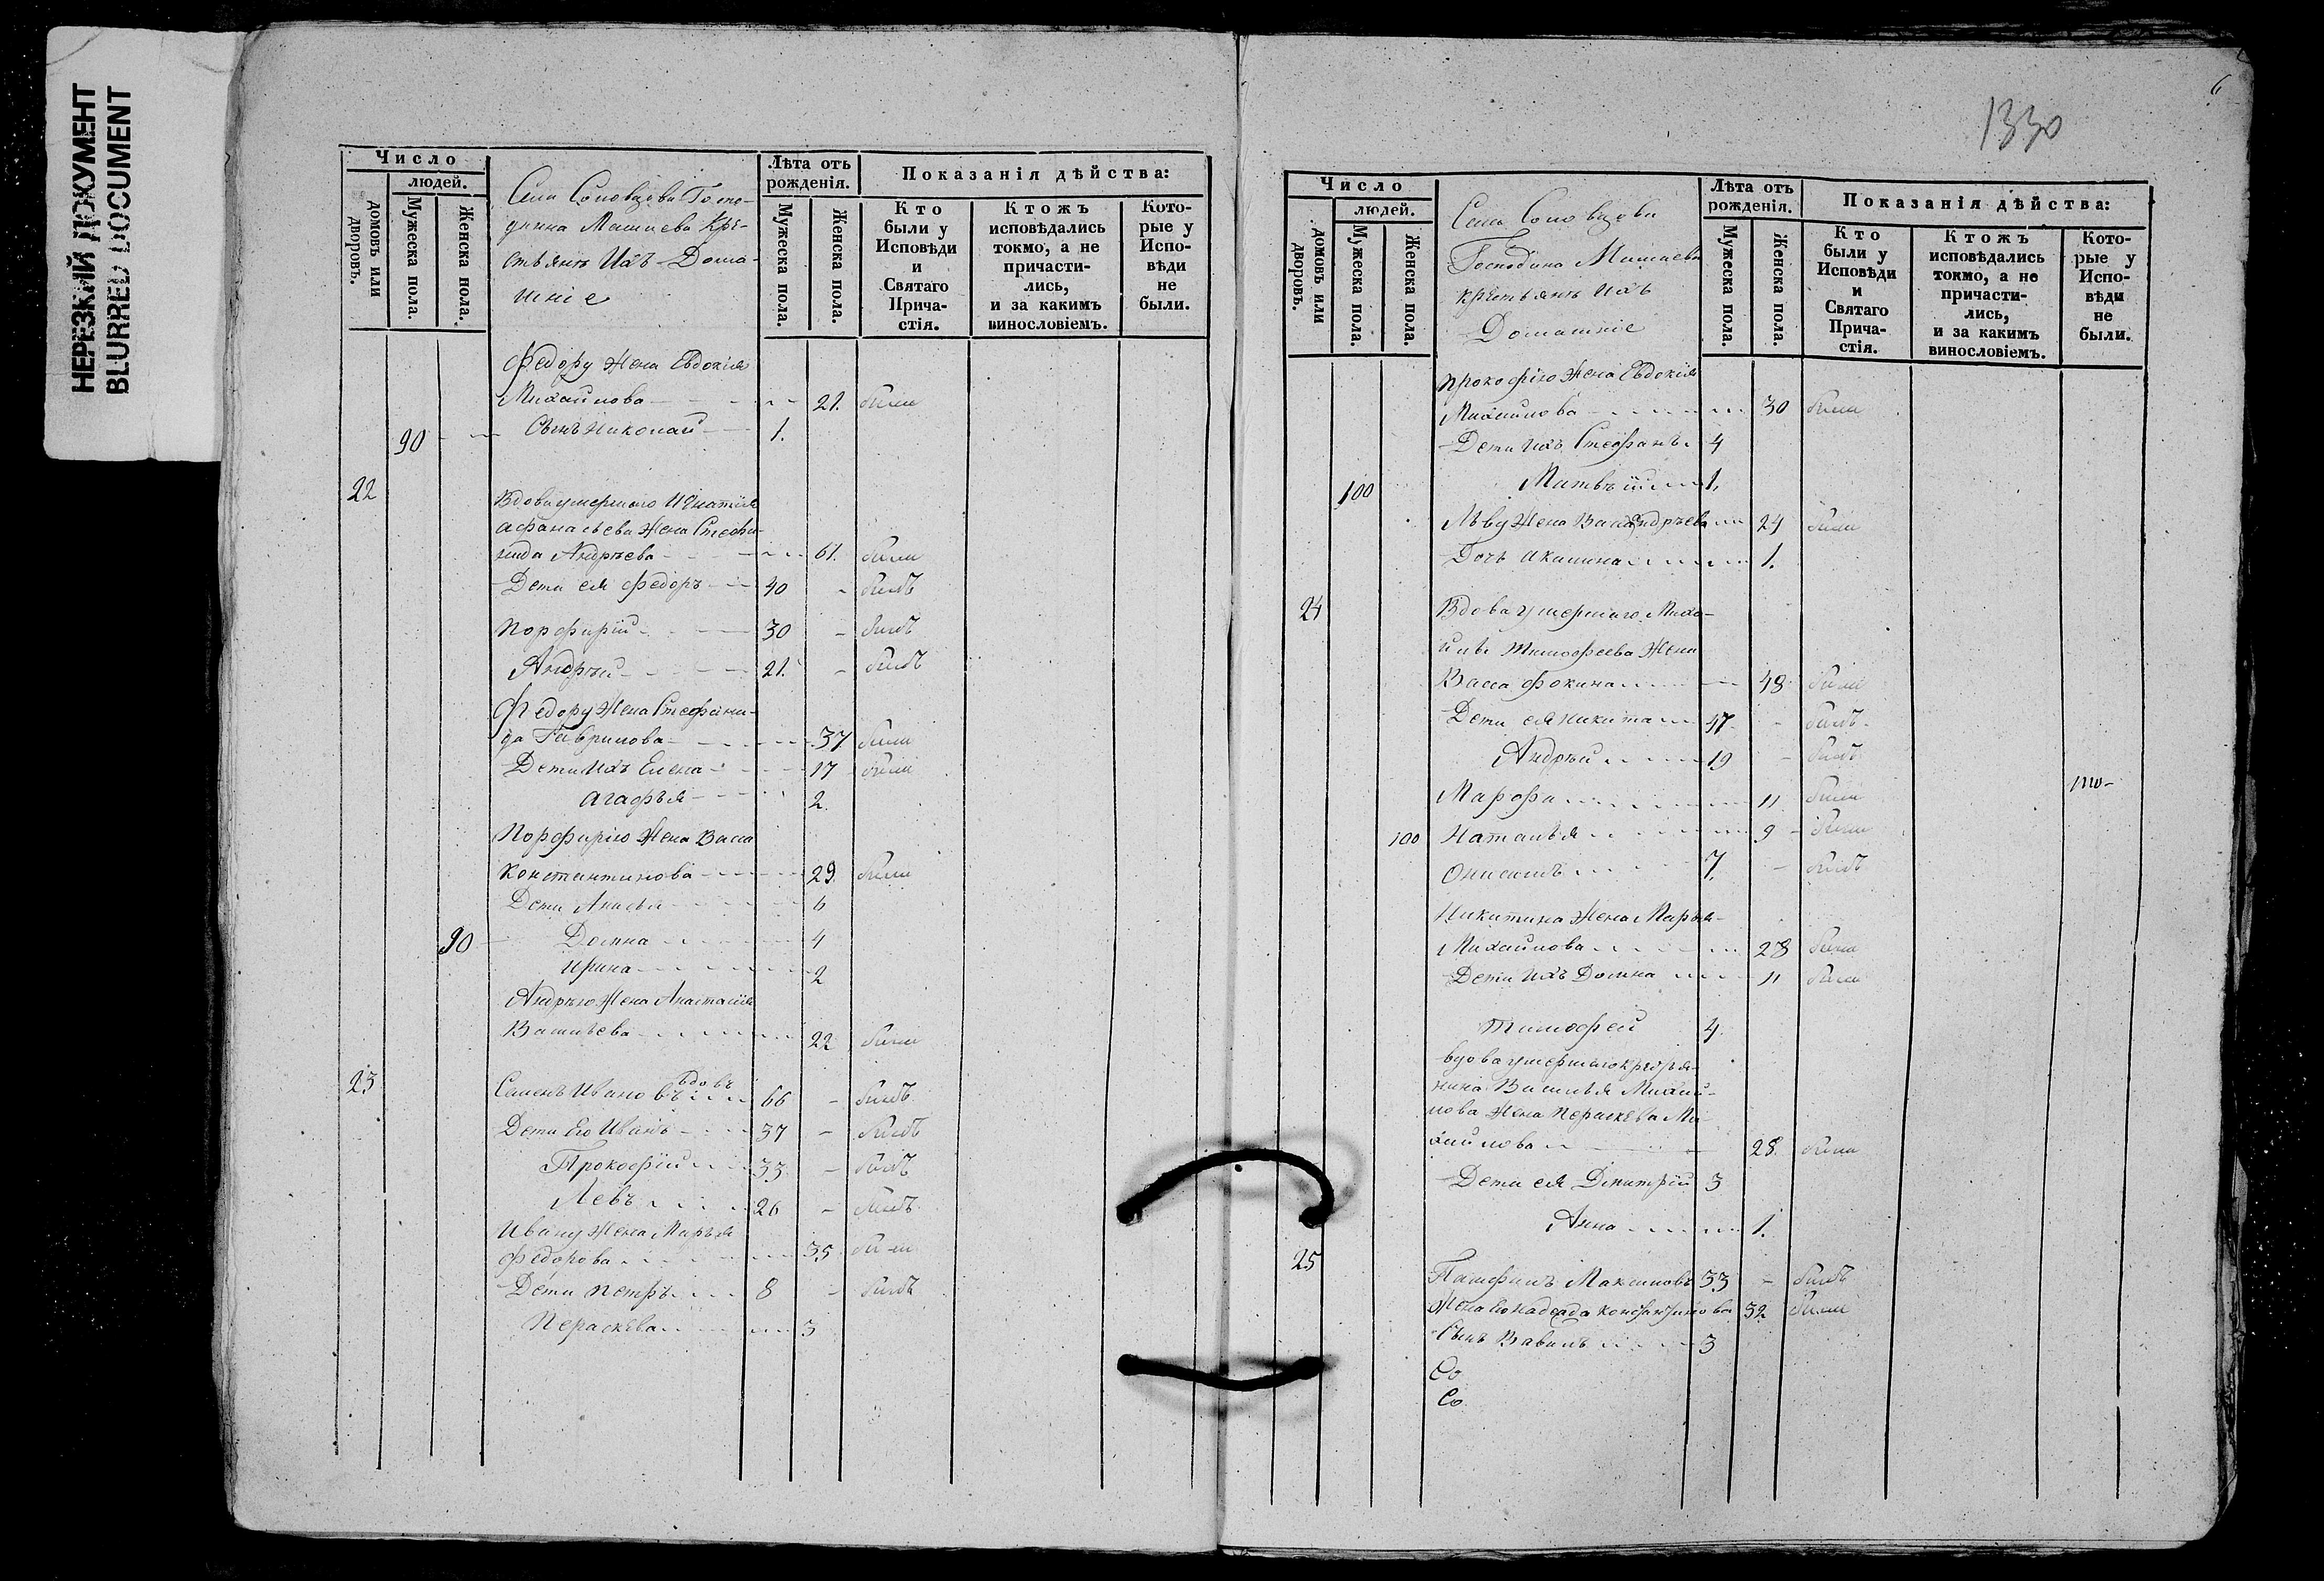 НЕРЕЗКИЙ ДОКУМЕНТ
BLURRED DOCUMENT
Число
людей.
домовъ или дворовъ.
Мужеска пола.
Женска пола.
Села Соловцова Госпо-
дина Машиева Кре-
стьянъ Ихъ Дома-
шніе
Лѣта отъ рожденія.
Мужеска пола.
Женска пола.
Показанія дѣйства:
Кто были у Исповѣди и Святаго Прича-стія.
Ктожъ исповѣдались токмо, а не причасти-лись, и за какимъ винословіемъ.
Кото-рые у Испо-вѣди не были.
Федору Жена Евдокія
Михайлова 21. были
90 Сынъ Николай 1.
22 Вдова умершаго Игнатія
Афанасьева Жена Стефа-
нида Андрѣева 61. были
Дети ея Федоръ 40 - былъ
Порфирій 30 - былъ
Андрѣй 21. - былъ
Федору Жена Стефани-
да Гаврилова 37 были
Дети Ихъ Елена 17 были
Агафья 2.
Порфирію Жена Васса
Константинова 29. были
Дети Анисья 6
90 Домна 4
Ирина 2
Андрѣю Жена Анастасія
Васильева 22 были
23 Семенъ Ивановъ вдовъ 66 - былъ
Дети Его Иванъ 37 - былъ
Прокофій 33 - былъ
Левъ 26 - былъ
Ивану Жена Марья
Федорова 35 были
Дети Петръ 8 - былъ
Пераскева 3
6
1330
Число
людей.
домовъ или дворовъ.
Мужеска пола.
Женска пола.
Села Соловцова
Господина Машиева
крестьянъ Ихъ
Домашніе
Лѣта отъ рожденія.
Мужеска пола.
Женска пола.
Показанія дѣйства:
Кто были у Исповѣди и Святаго Прича-стія.
Ктожъ исповѣдались токмо, а не причасти-лись, и за какимъ винословіемъ.
Кото-рые у Испо-вѣди не были.
Прокофію Жена Евдокія
Михайлова 30 были
Дети Ихъ Стефанъ 4
100 Матвѣй 1.
Льву Жена Васса Андрѣева 24 были
Дочь Акилина 1.
24 Вдова умершаго Миха-
йлы Тимофеева Жена
Васса Фокина 48 были
Дети ея Никита 47 - былъ
Андрѣй 19 - былъ
Марфа 11 были
100 Наталья 9 - были
Онисимъ 7. - былъ
Никитина Жена Марья
Михайлова 28 были
Дети Ихъ Домна 11 были
Тимофей 4.
вдова умершаго крестья-
нина Василья Михай-
лова Жена Пераскева Ми-
хайлова 28. были
Дети ея Димитрій 3
Анна 1.
25 Памфилъ Максимовъ 33 - былъ
Жена Его Надежда Константинова 32 были
Сынъ Вавилъ 3
Со
Со